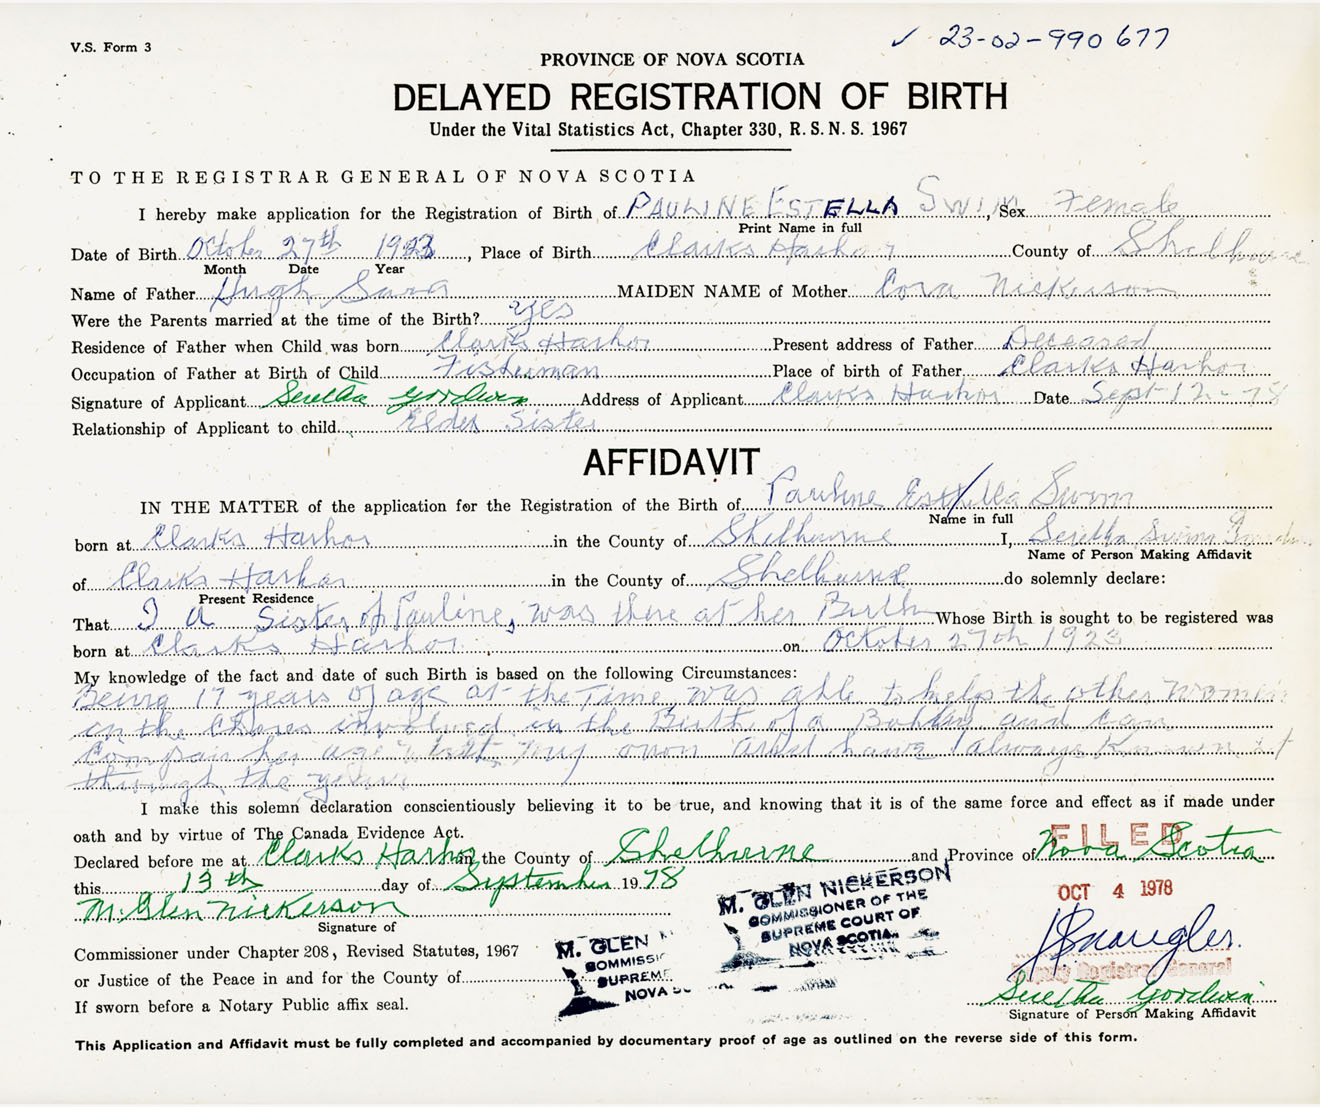 V.S. Form 3
✓ 23-02-990677
PROVINCE OF NOVA SCOTIA
DELAYED REGISTRATION OF BIRTH
Under the Vital Statistics Act, Chapter 330, R. S. N. S. 1967
TO THE REGISTRAR GENERAL OF NOVA SCOTIA
I hereby make application for the Registration of Birth of PAULINE ESTELLA SWIM, Sex Female
Print Name in full
Date of Birth October 27th 1923, Place of Birth Clarks Harbor County of Shelburne
Month Date Year
Name of Father Hugh MAIDEN NAME of Mother Cora Nickerson
Were the Parents married at the time of the Birth? yes
Residence of Father when Child was born Clarks Harbor Present address of Father Deceased
Occupation of Father at Birth of Child Fisherman Place of birth of Father Clarks Harbor
Signature of Applicant Seretha Goodwin Address of Applicant Clarks Harbor Date Sept 12 - 78
Relationship of Applicant to child Elder Sister
AFFIDAVIT
IN THE MATTER of the application for the Registration of the Birth of Pauline Estella Swim
Name in full
born at Clarks Harbor in the County of Shelburne I, Seretha Swim
Name of Person Making Affidavit
of Clarks Harbor in the County of Shelburne do solemnly declare:
Present Residence
That I a Sister of Pauline, was there at her Birth Whose Birth is sought to be registered was
born at Clarks Harbor on October 27th 1923
My knowledge of the fact and date of such Birth is based on the following Circumstances:
Being 17 years of age at the Time, was able to help the other Women
in the Chores involved in the Birth of a and can
Compair her age my own and have always Known it
through the years
I make this solemn declaration conscientiously believing it to be true, and knowing that it is of the same force and effect as if made under
oath and by virtue of The Canada Evidence Act.
FILED
Declared before me at Clarks Harbor in the County of Shelburne and Province of Nova Scotia
this 13th day of September 1978
OCT 4 1978
M. Glen Nickerson
Signature of
M. GLEN NICKERSON
COMMISSIONER OF THE
SUPREME COURT OF
NOVA SCOTIA
Commissioner under Chapter 208, Revised Statutes, 1967
or Justice of the Peace in and for the County of
If sworn before a Notary Public affix seal.
M. GLEN N
COMMISSI
SUPREME
NOVA SC
Deputy Registrar General
Seretha Goodwin
Signature of Person Making Affidavit
This Application and Affidavit must be fully completed and accompanied by documentary proof of age as outlined on the reverse side of this form.